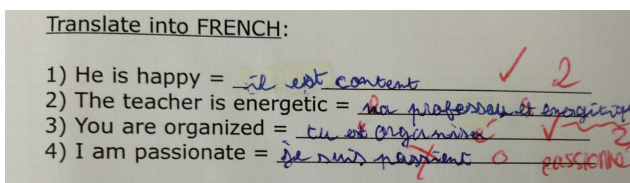 Translate into FRENCH:
1) He is happy = il est content ✓ 2
2) The teacher is energetic =
3) You are organized = tu es organisé ✓ 2
4) I am passionate = je suis passient 0 PASSIONNÉ